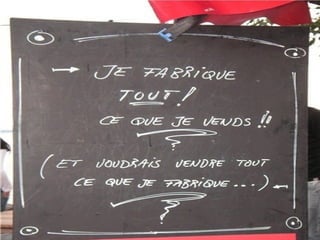 → JE FABRIQUE
TOUT!
CE QUE JE VENDS!!
(ET VOUDRAIS VENDRE TOUT
CE QUE JE FABRIQUE...)